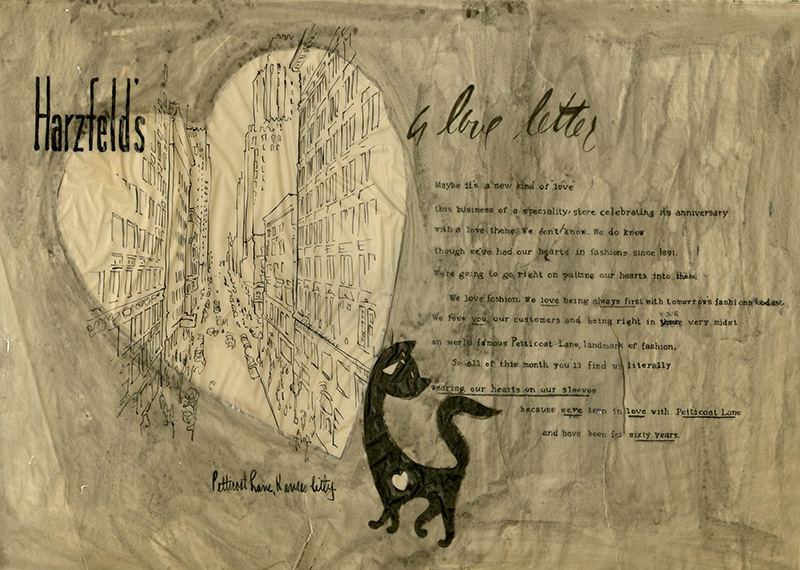 Harzfeld's
a love letter
Maybe it's a new kind of love
this business of a speciality store celebrating it's anniversary
with a love theme. We don't know. We do know
though we've had our hearts in fashions since 1891.
We're going to go right on putting our hearts into them
We love fashion. We love being always first with tomorrows fashions today.
We love you, our customers and being right in your very midst
on world famous Petticoat Lane, landmark of fashion.
So all of this month you'll find us literally
wearing our hearts on our sleeves
because were been in love with Petticoat Lane
and have been for sixty years.
Petticoat Lane, Kansas City